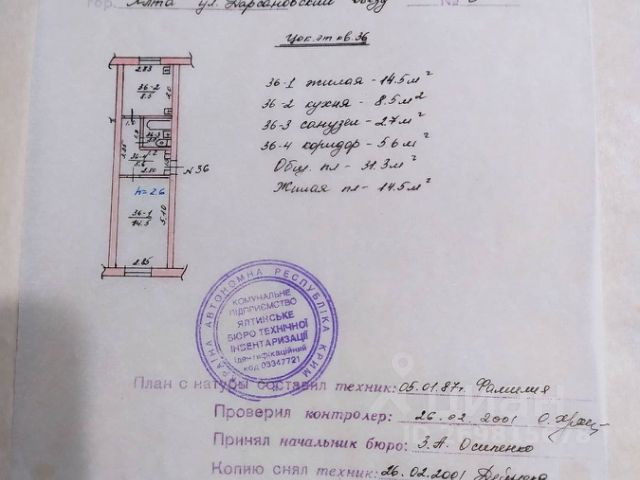 гор. Ялта ул. Дарсановский №
Цок. эт кв. 36
36-1 жилая - 14.5 м²
36-2 кухня - 8.5 м²
36-3 санузел - 2.7 м²
36-4 коридор - 5.6 м²
Общ. пл - 31.3 м²
Жилая пл - 14.5 м²
2.83
36-2
8.5
N 36
2.80
h=2.6
36-1
14.5
5.10
2.85
УКРАЇНА АВТОНОМНА РЕСПУБЛІКА КРИМ
КОМУНАЛЬНЕ
ПІДПРИЄМСТВО
ЯЛТИНСЬКЕ
БЮРО ТЕХНІЧНОЇ
ІНВЕНТАРИЗАЦІЇ
ідентифікаційний
код 03347721
План с натуры составил техник: 05.01.87г. Фамилия
Проверил контролер: 26.02.2001
Принял начальник бюро: З.А. Осипенко
Копию снял техник: 26.02.2001